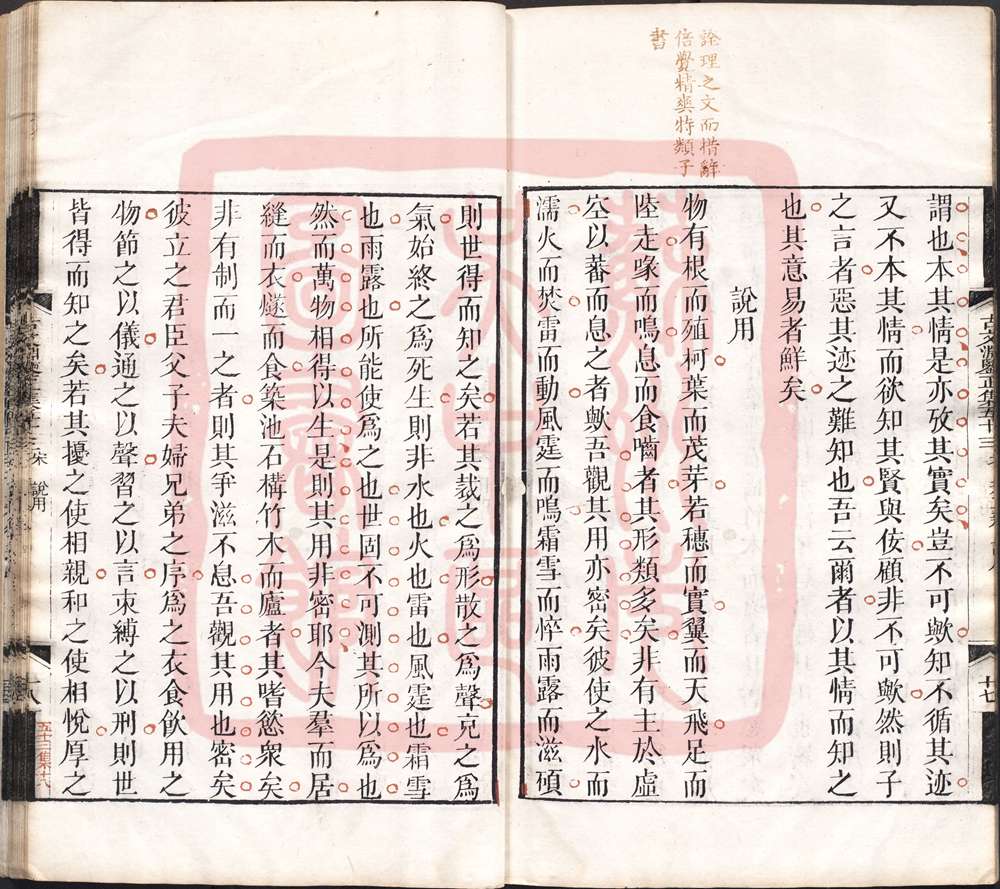 詮理之文而惜辭
倍覺精爽特類子
書
謂也本其情是亦攷其實矣豈不可歟知不循其迹
又不本其情而欲知其賢與佞顧非不可歟然則子
之言者惡其迹之難知也吾云爾者以其情而知之
也其意易者鮮矣
說用
物有根而殖柯葉而茂芽若穗而實翼而天飛足而
陸走喙而鳴息而食嚙者其形類多矣非有主於虛
空以蕃而息之者歟吾觀其用亦密矣彼使之水而
濡火而焚雷而動風霆而鳴霜雪而悴雨露而滋碩
則世得而知之矣若其裁之為形散之為聲充之為
氣始終之為死生則非水也火也雷也風霆也霜雪
也雨露也所能使為之也世固不可測其所以為也
然而萬物相得以生是則其用非密耶今夫羣而居
縫而衣燧而食築池石構竹木而廬者其嗜慾衆矣
非有制而一之者則其爭滋不息吾觀其用也密矣
彼立之君臣父子夫婦兄弟之序為之衣食飲用之
物節之以儀通之以聲習之以言束縛之以刑則世
皆得而知之矣若其擾之使相親和之使相悅厚之
說用
五十三集十八